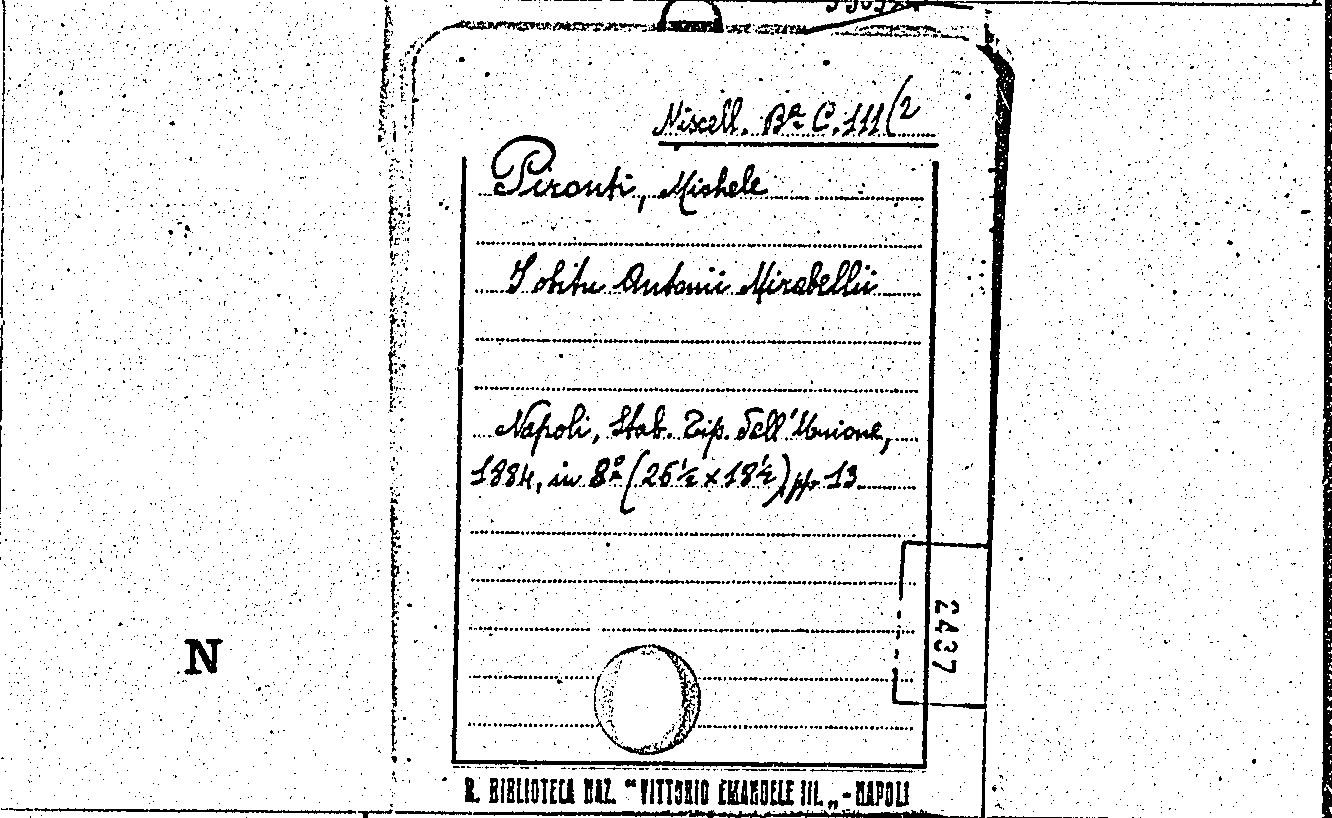 Miscell. Bª C. 111(2
Pironti, Michele
Obitu Antonii Mirabellii
Napoli, Stab. Tip. dell'Unione,
1884, in 8º (26½ x 18½) pp. 13
2437
N
R. BIBLIOTECA NAZ. "VITTORIO EMANUELE III.„ - NAPOLI